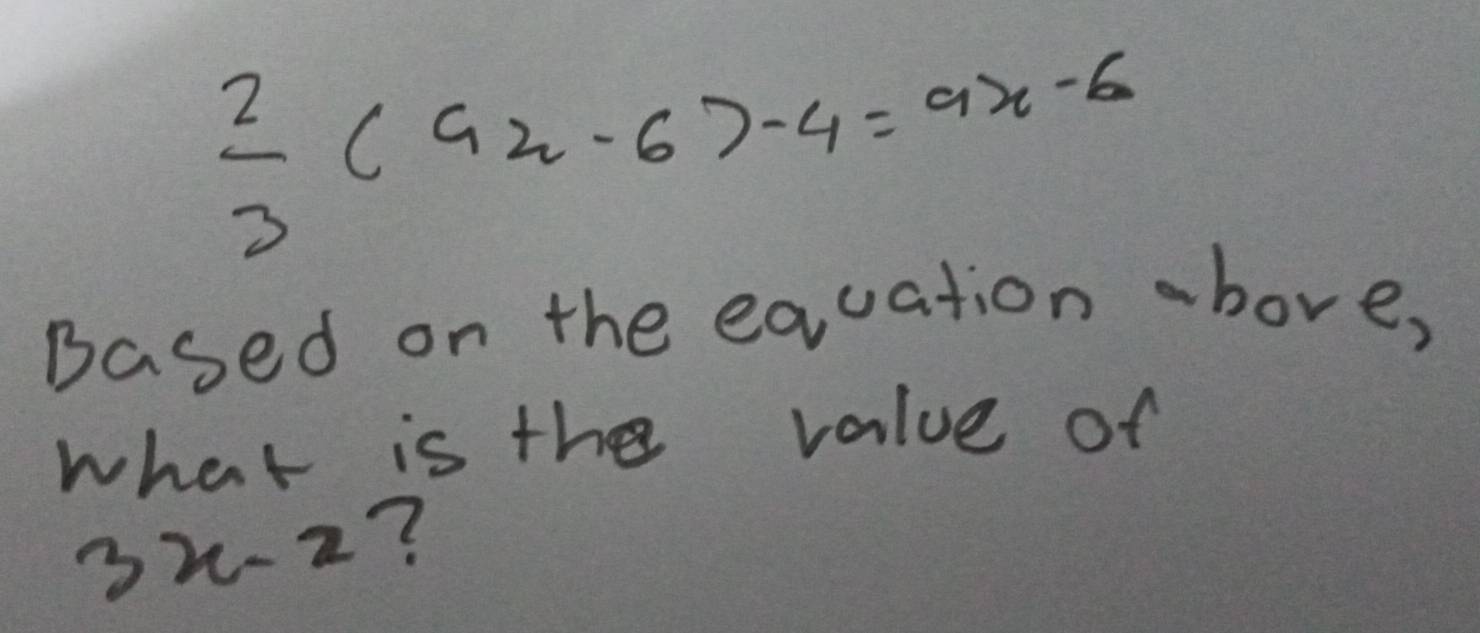 2/3 (9x - 6) - 4 = 9x - 6
Based on the equation above,
what is the value of
3x - 2?